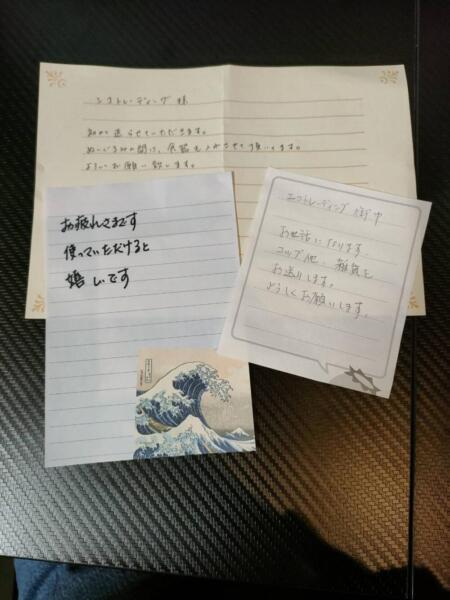 エコトレーディング 様
初めて送らせていただきます。
食器も入れさせて頂いてます。
よろしくお願い致します。
お疲れさまです
使っていただけると
嬉しいです
エコトレーディング 御中
お世話になります。
コップ他、雑貨を
お送りします。
よろしくお願いします。